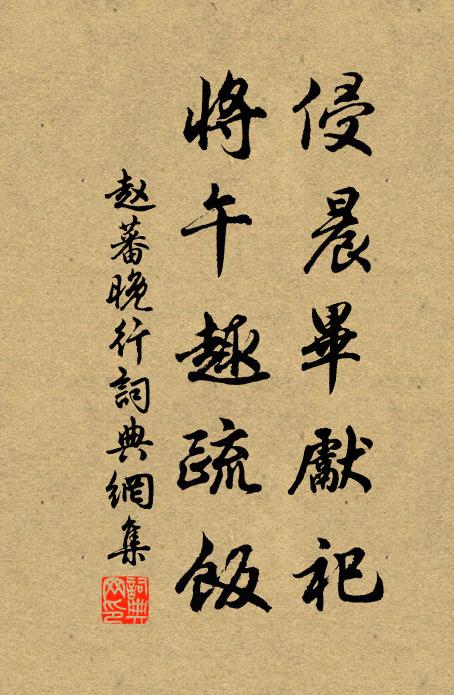 侵晨畢獻祀
將午趣疏飯
赵蕃晚行詞典網集
詞典网印